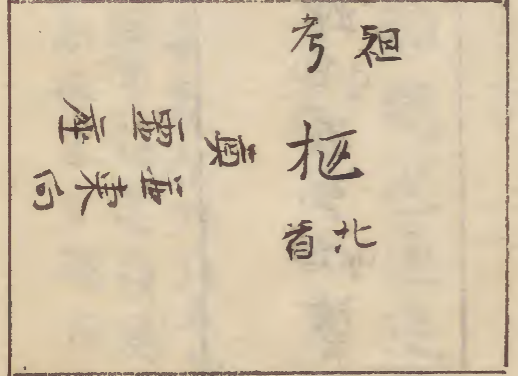 祖考
柩
北首
奠
靈座
並東向